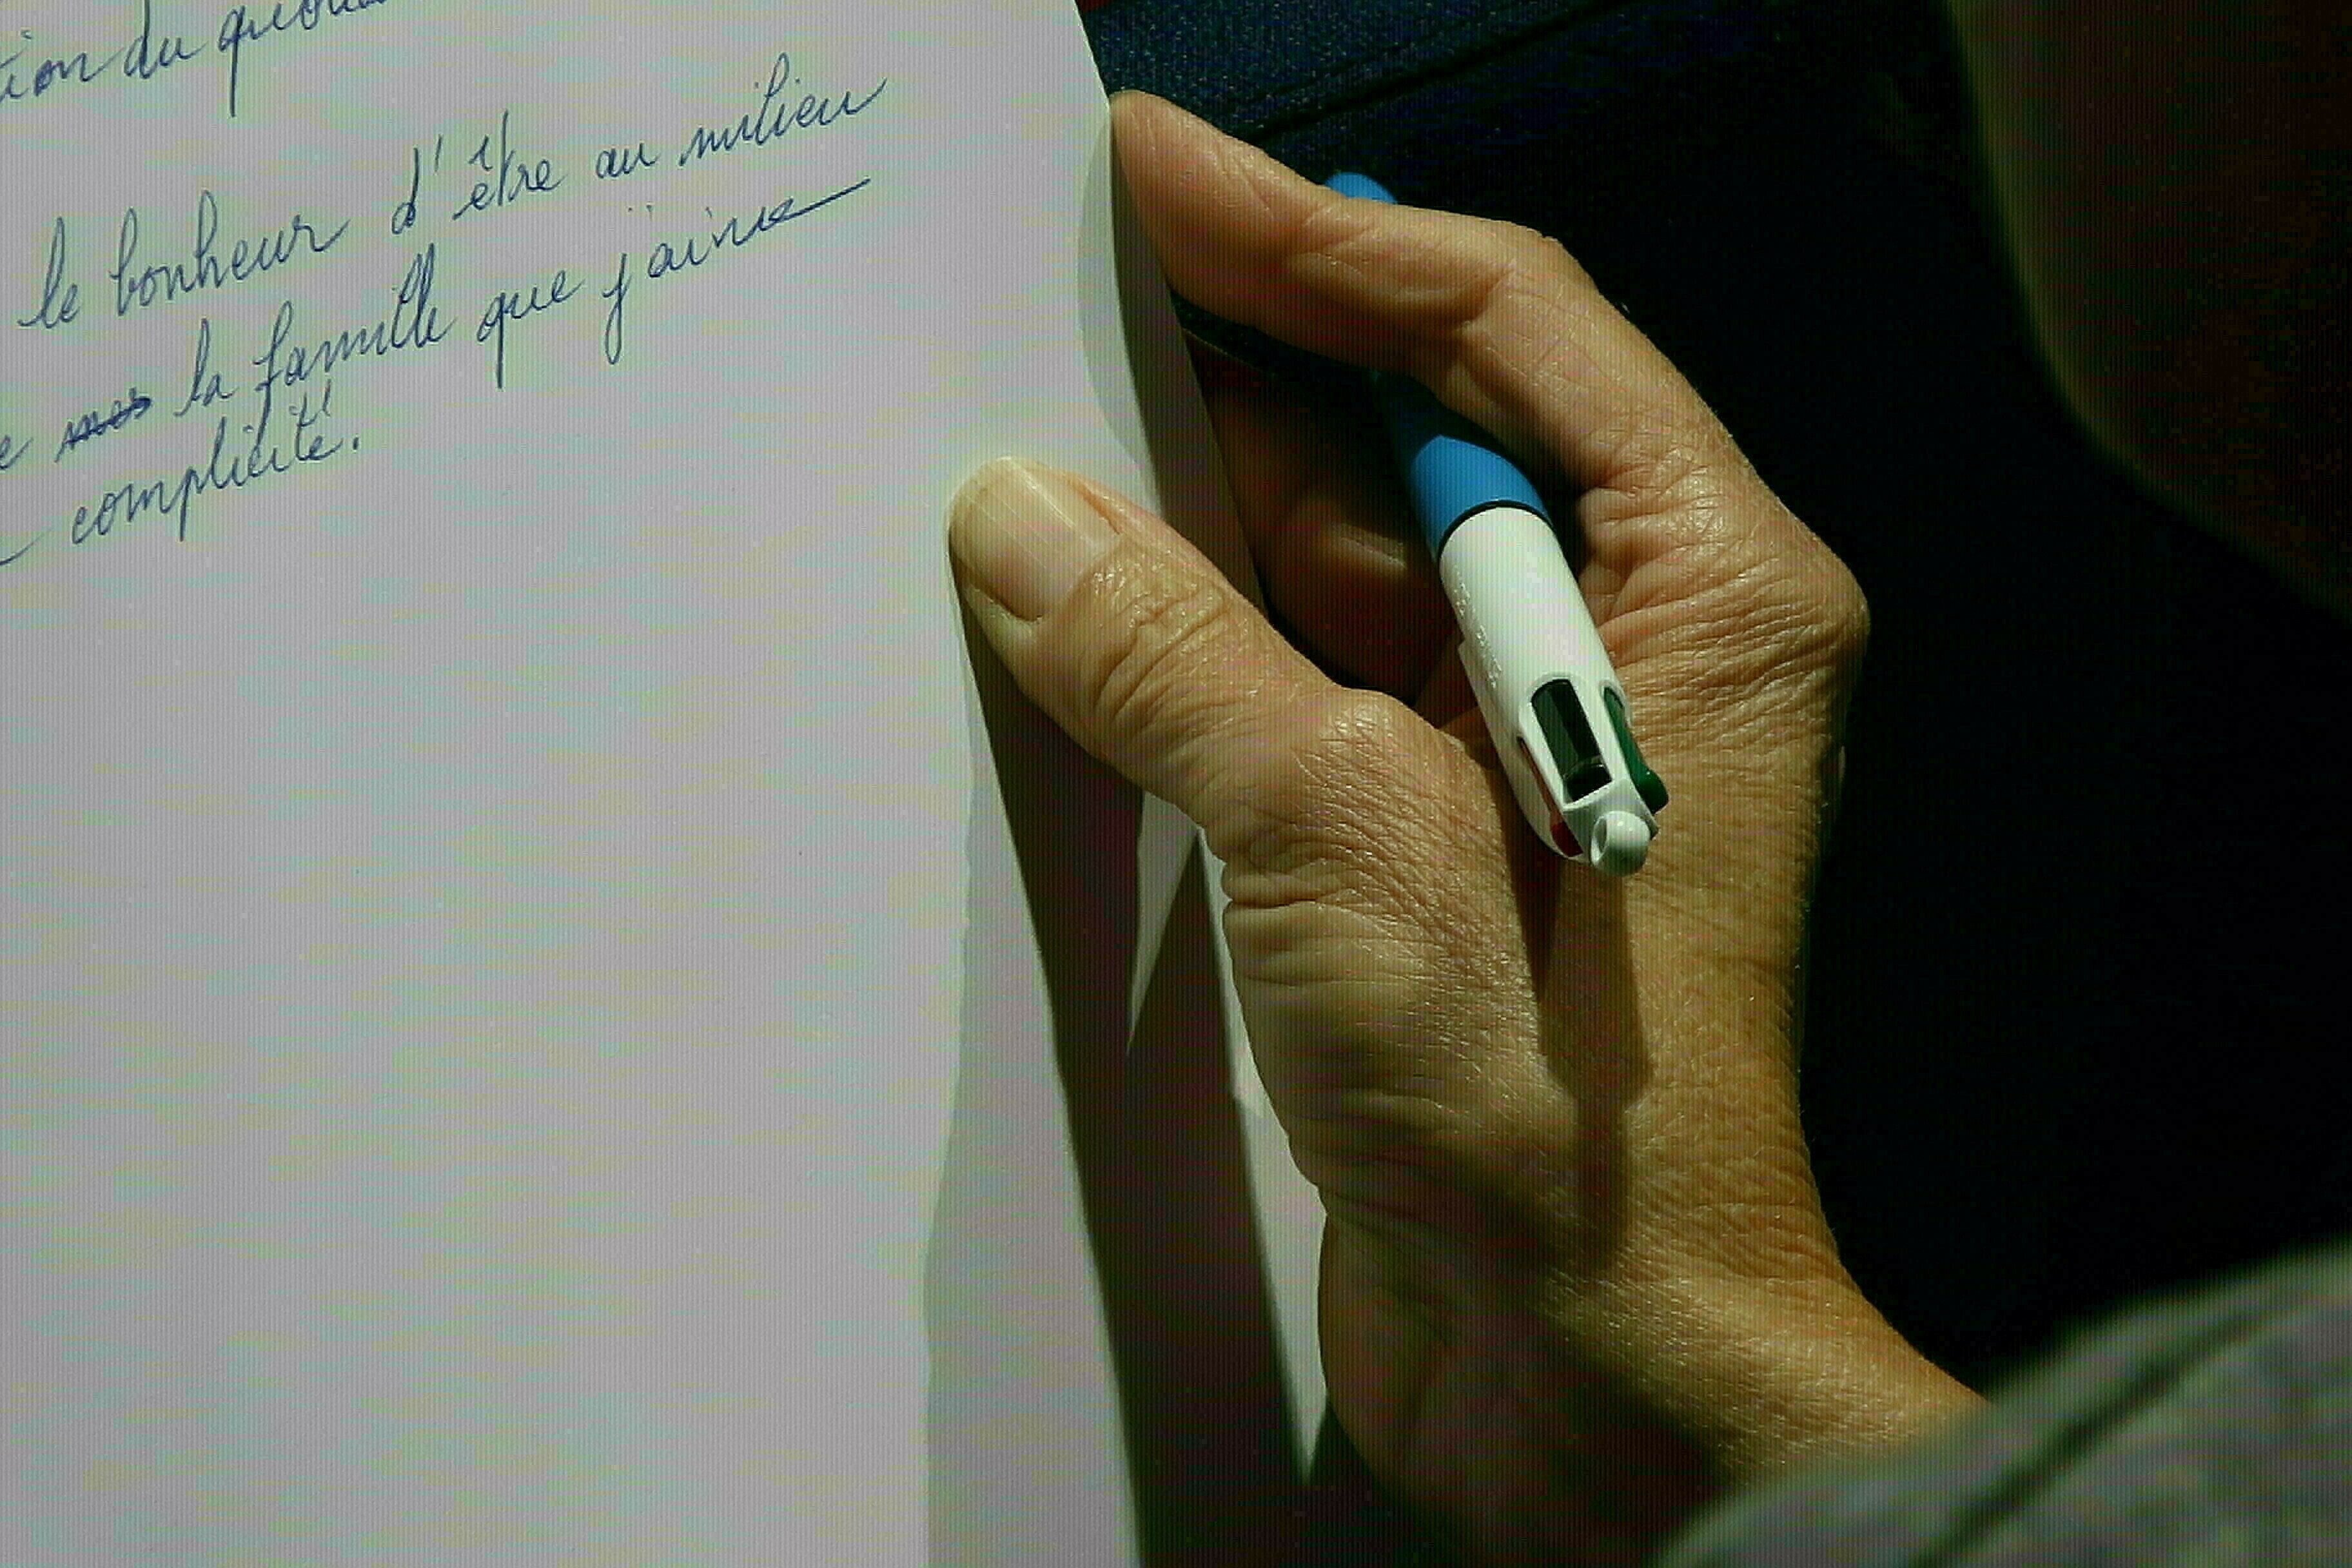 tion du quoti
le bonheur d'être au milieu
e mes la famille que j'aime
complicité.